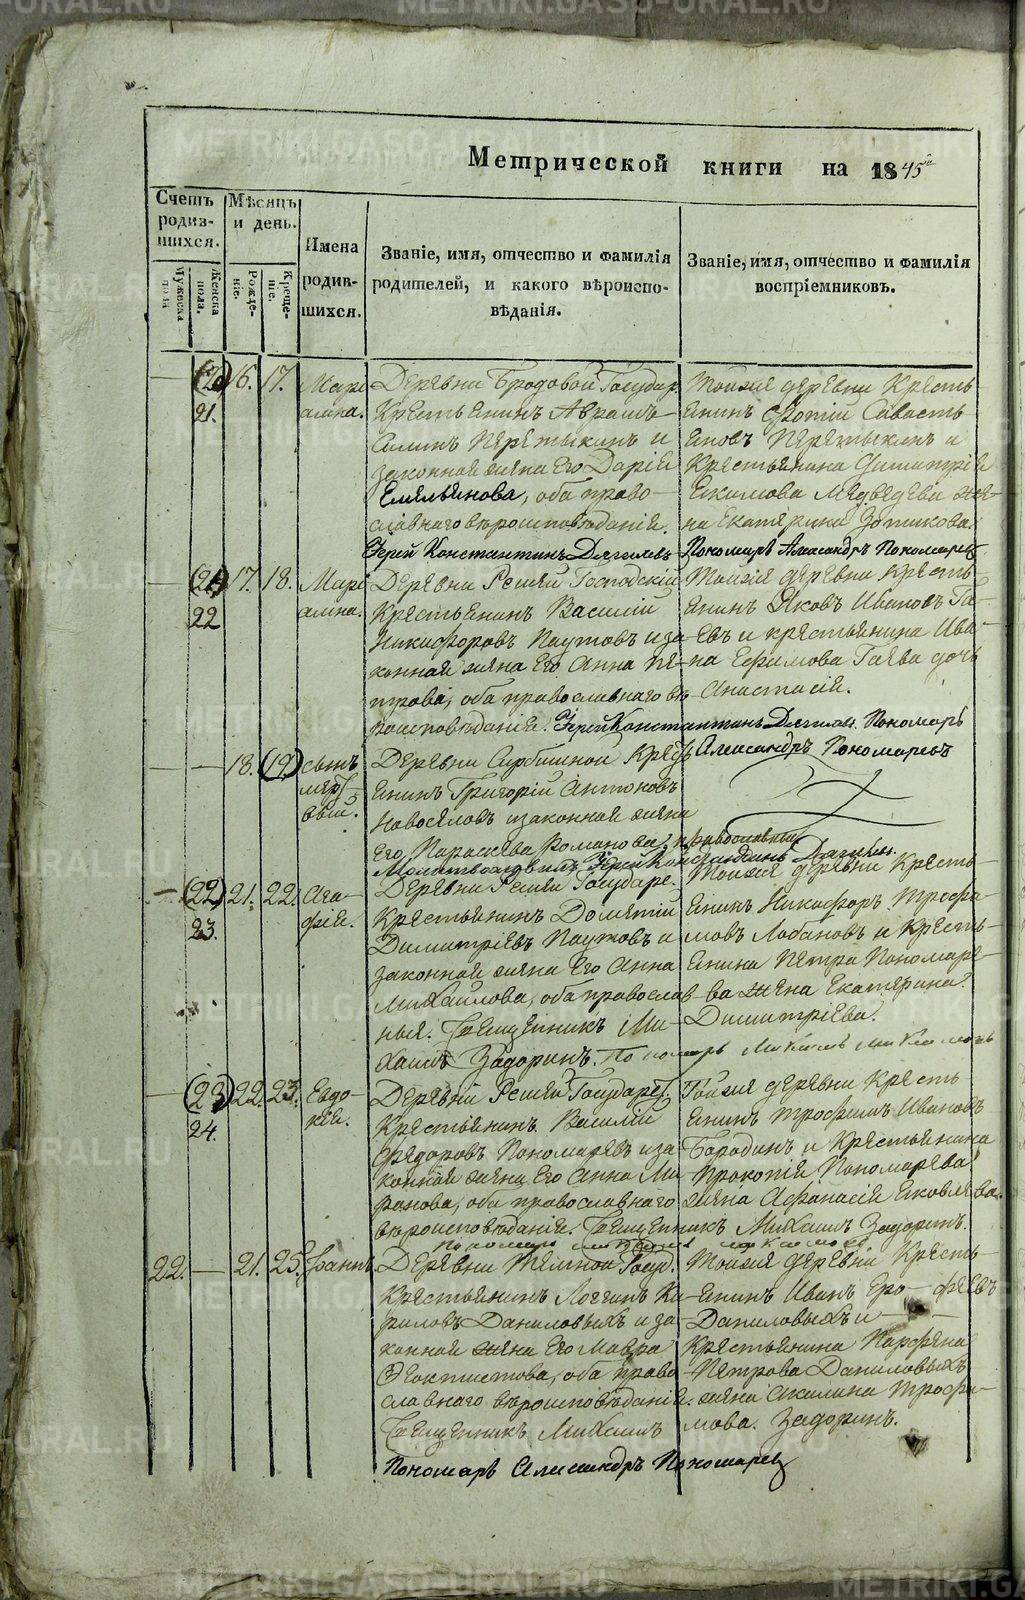 METRIKI.GASO-URAL.RU
Метрической книги на 1845
Счетъ родившихся.
Мѣсяцъ и день.
Имена родившихся.
Званіе, имя, отчество и фамилія родителей, и какого вѣроисповѣданія.
Званіе, имя, отчество и фамилія воспріемниковъ.
Мужеска пола
Женска пола.
Рожденіе.
Крещеніе.
21. 16. 17. Маріамна.
Деревни Бродовой Государ.
Крестьянинъ Авраамъ
и
законная жена его Дарія
Емельянова, оба право-
славнаго вѣроисповѣданія.
Іерей Константинъ Дягилевъ
Тойжя деревни Кресть-
янинъ Фотій Савасть-
яновъ и
Крестьянина Димитрія
Екимова Медведева же-
на Екатерина Зотикова.
Пономарь Александръ Пономаревъ
(21) 22 17. 18. Маріамна.
Деревни Господскій
Крестьянинъ Василий
Никифоровъ Паутовъ и за-
конная жена его Анна Пе-
трова, оба православнаго вѣ-
роисповѣданія. Іерей Константинъ Дягилевъ. Пономарь
Александръ Пономаревъ
Тойжя деревни Кресть-
янинъ Яковъ Ивановъ Га-
евъ и крестьянина Ива-
на Ефимова Гаева дочь
Анастасія.
18. (19.) сынъ мертвый.
Деревни Кресть-
янинъ Григорій Антоновъ
Новоселовъ и законная жена
его Параскева Романова, православныя
Іерей Константинъ Дягилевъ.
(22) 23. 21. 22. Агафія.
Деревни Государс.
Крестьянинъ Дометій
Димитріевъ Паутовъ и
законная жена его Анна
Михайлова, оба православ-
ныя. Священникъ Ми-
хаилъ Задоринъ. Пономарь
Тойжя деревни Кресть-
янинъ Никифоръ Трофи-
мовъ Лобановъ и Кресть-
янина Петра Пономаре-
ва жена Екатерина
Димитріева.
(23) 24. 22. 23. Евдокія.
Деревни Государ.
Крестьянинъ Василій
Федоровъ Пономаревъ и за-
конная жена его Анна Ми-
ронова, оба православнаго
вѣроисповѣданія. Священникъ Михаилъ Задоринъ.
Тойжя деревни Кресть-
янинъ Трофимъ Ивановъ
Бородинъ и Крестьянина
Прокопія Пономарева
жена Афанасія Яковлева.
22. — 21. 25. Іоаннъ.
Деревни Темной Госуд.
Крестьянинъ Логгинъ Ки-
риловъ Даниловыхъ и за-
конная жена его Мавра
Феоктистова, оба право-
славнаго вѣроисповѣданія.
Священникъ Михаилъ Задоринъ.
Тойжя деревни Кресть-
янинъ Иванъ Ерофеевъ
Даниловыхъ и
Крестьянина Парфена
Петрова Даниловыхъ
жена Акилина Трофи-
мова.
Пономарь Александръ Пономаревъ